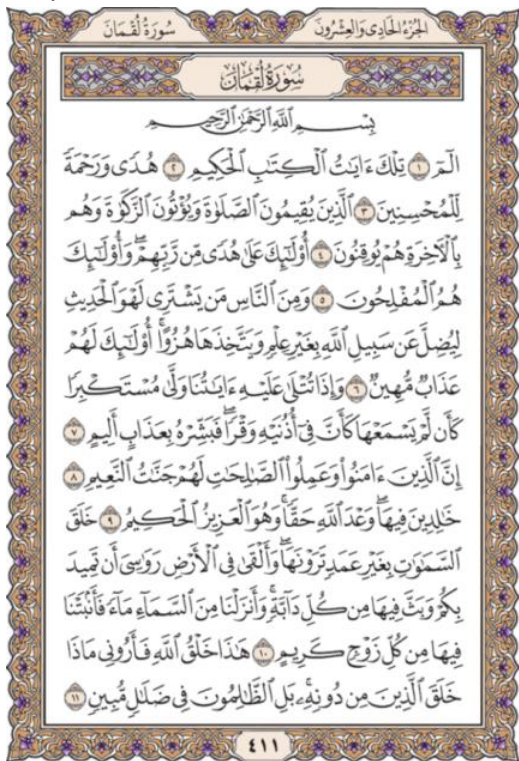 سُورَةُ لُقْمَانَ
الجُزْءُ الحَادِي وَالعِشْرُونَ
سُورَةُ لُقْمَانَ
بِسْمِ ٱللَّهِ ٱلرَّحْمَٰنِ ٱلرَّحِيمِ
الٓمٓ ١ تِلْكَ ءَايَٰتُ ٱلْكِتَٰبِ ٱلْحَكِيمِ ٢ هُدًى وَرَحْمَةً
لِّلْمُحْسِنِينَ ٣ ٱلَّذِينَ يُقِيمُونَ ٱلصَّلَوٰةَ وَيُؤْتُونَ ٱلزَّكَوٰةَ وَهُم
بِٱلْأٓخِرَةِ هُمْ يُوقِنُونَ ٤ أُوْلَٰٓئِكَ عَلَىٰ هُدًى مِّن رَّبِّهِمْۖ وَأُوْلَٰٓئِكَ
هُمُ ٱلْمُفْلِحُونَ ٥ وَمِنَ ٱلنَّاسِ مَن يَشْتَرِى لَهْوَ ٱلْحَدِيثِ
لِيُضِلَّ عَن سَبِيلِ ٱللَّهِ بِغَيْرِ عِلْمٍ وَيَتَّخِذَهَا هُزُوًاۚ أُوْلَٰٓئِكَ لَهُمْ
عَذَابٌ مُّهِينٌ ٦ وَإِذَا تُتْلَىٰ عَلَيْهِ ءَايَٰتُنَا وَلَّىٰ مُسْتَكْبِرًا
كَأَن لَّمْ يَسْمَعْهَا كَأَنَّ فِىٓ أُذُنَيْهِ وَقْرًاۖ فَبَشِّرْهُ بِعَذَابٍ أَلِيمٍ ٧
إِنَّ ٱلَّذِينَ ءَامَنُواْ وَعَمِلُواْ ٱلصَّٰلِحَٰتِ لَهُمْ جَنَّٰتُ ٱلنَّعِيمِ ٨
خَٰلِدِينَ فِيهَاۖ وَعْدَ ٱللَّهِ حَقًّاۚ وَهُوَ ٱلْعَزِيزُ ٱلْحَكِيمُ ٩ خَلَقَ
ٱلسَّمَٰوَٰتِ بِغَيْرِ عَمَدٍ تَرَوْنَهَاۖ وَأَلْقَىٰ فِى ٱلْأَرْضِ رَوَٰسِىَ أَن تَمِيدَ
بِكُمْ وَبَثَّ فِيهَا مِن كُلِّ دَآبَّةٍۚ وَأَنزَلْنَا مِنَ ٱلسَّمَآءِ مَآءً فَأَنۢبَتْنَا
فِيهَا مِن كُلِّ زَوْجٍ كَرِيمٍ ١٠ هَٰذَا خَلْقُ ٱللَّهِ فَأَرُونِى مَاذَا
خَلَقَ ٱلَّذِينَ مِن دُونِهِۦۚ بَلِ ٱلظَّٰلِمُونَ فِى ضَلَٰلٍ مُّبِينٍ ١١
٤١١